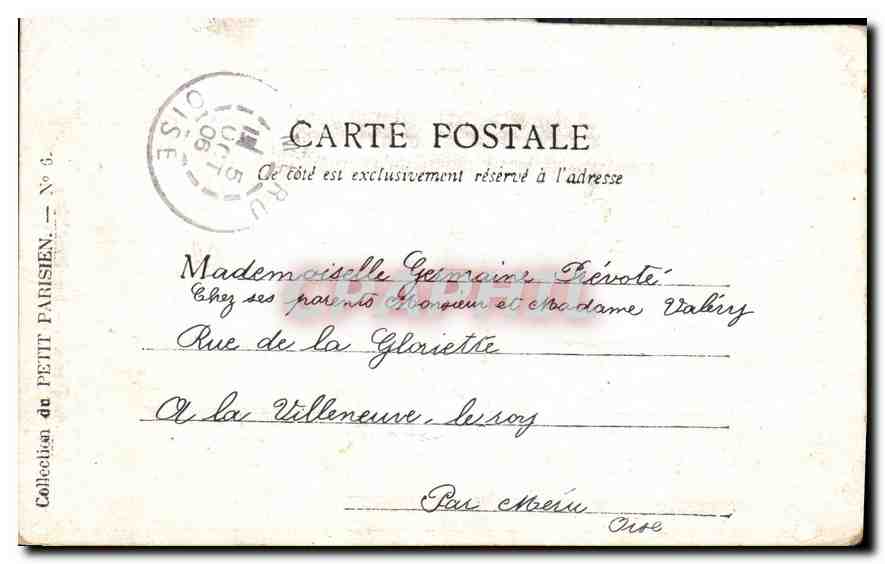 CARTE POSTALE
Ce côté est exclusivement réservé à l'adresse
MERU
5
OCT
06
OISE
Mademoiselle Germaine Prévoté
Chez ses parents Monsieur et Madame Valéry
Rue de la Gloriette
A la Villeneuve. le roy
Par Méru
Oise
Collection du PETIT PARISIEN. — No 6.